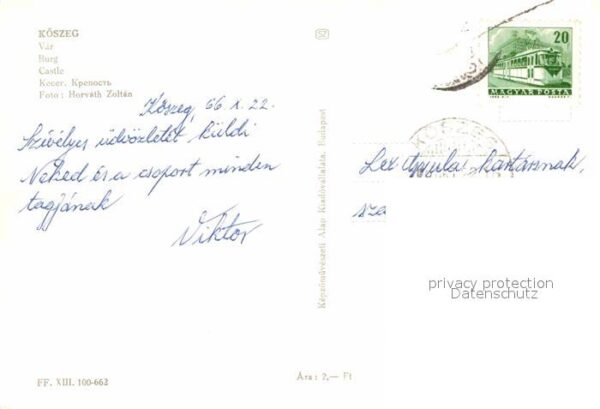 KŐSZEG
Vár
Burg
Castle
Кесег. Крепость
Foto: Horváth Zoltán
Kőszeg, 66. X. 22.
Szívélyes üdvözletét küldi
Neked és a csoport minden
tagjának
Viktor
FF. XIII. 100-662
SZ
Képzőművészeti Alap Kiadóvállalata, Budapest
Ára: 2,— Ft
20
MAGYAR POSTA
KŐSZEG
Lex Gyula kartársnak,
sza
privacy protection
Datenschutz